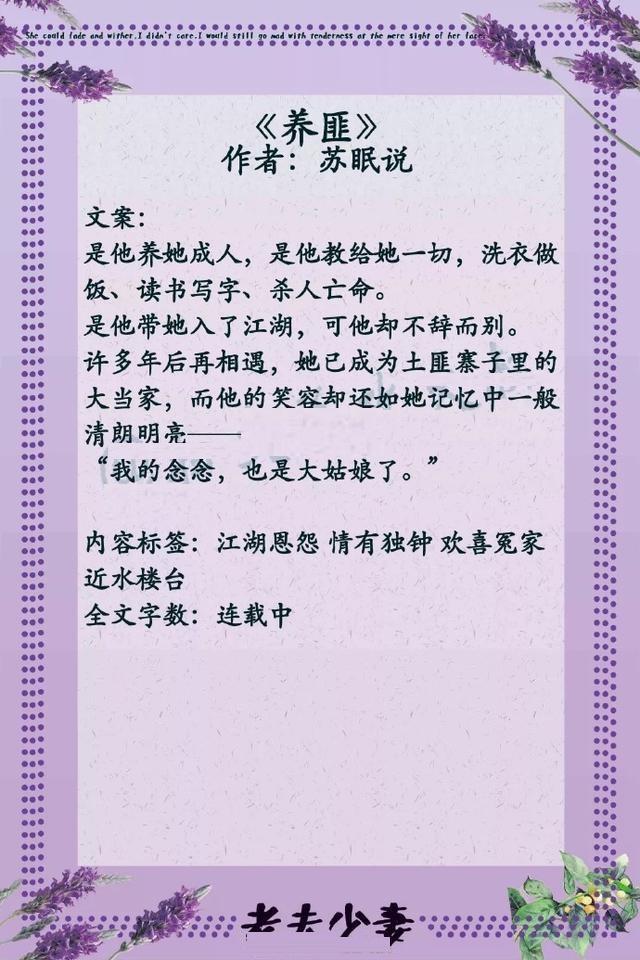 She could fade and wither, I didn't care. I would still go mad with tenderness at the mere sight of her face.
《养匪》
作者：苏眠说
文案：
是他养她成人，是他教给她一切，洗衣做
饭、读书写字、杀人亡命。
是他带她入了江湖，可他却不辞而别。
许多年后再相遇，她已成为土匪寨子里的
大当家，而他的笑容却还如她记忆中一般
清朗明亮——
“我的念念，也是大姑娘了。”
内容标签：江湖恩怨 情有独钟 欢喜冤家
近水楼台
全文字数：连载中